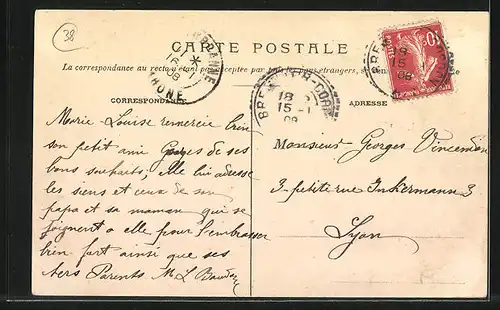 38
CARTE POSTALE
La correspondance au recto n'étant pas acceptée par tous les pays étrangers, se
CORRESPONDANCE
ADRESSE
RHONE
16
08
18
15 -1
08
15
08
10
Marie Louise remercie bien
son petit ami Georges de ses
bons souhaits, elle lui adresse
les siens et ceux de son
papa et sa maman qui se
joignent a elle pour l'embrasser
bien fort ainsi que ses
chers Parents M L
Monsieur Georges
3 petite rue Inkermann 3
Lyon